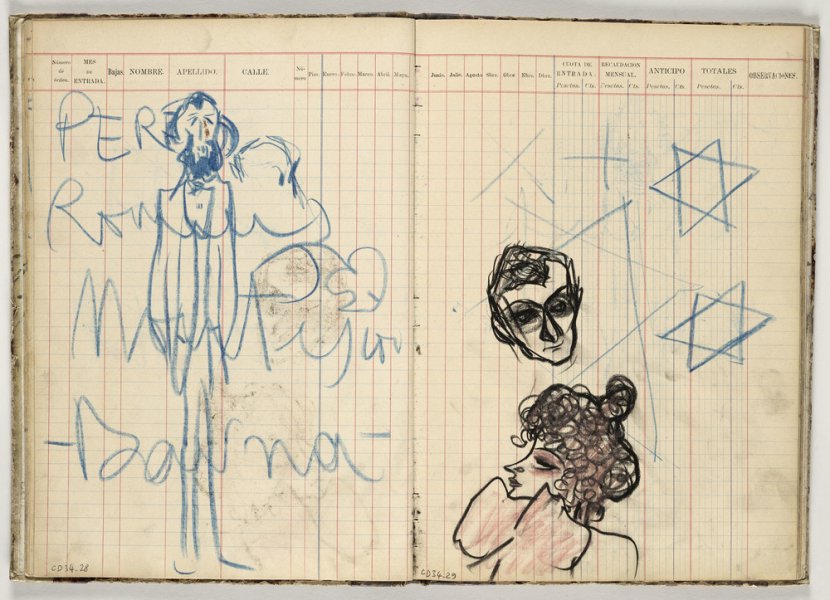 Número de órden.
MES DE ENTRADA.
Bajas.
NOMBRE.
APELLIDO.
CALLE
Nú-
mero
Piso. Enero. Febro. Marzo. Abril. Mayo.
PERE
Romeu
-Barna-
CD34_28
Junio. Julio. Agosto Sbre. Obre Nbre. Dbre.
CUOTA DE ENTRADA.
Pesetas. Cts.
RECAUDACION MENSUAL.
Pesetas. Cts.
ANTICIPO
Pesetas. Cts.
TOTALES
Pesetas. Cts.
OBSERVACIONES.
CD34_29